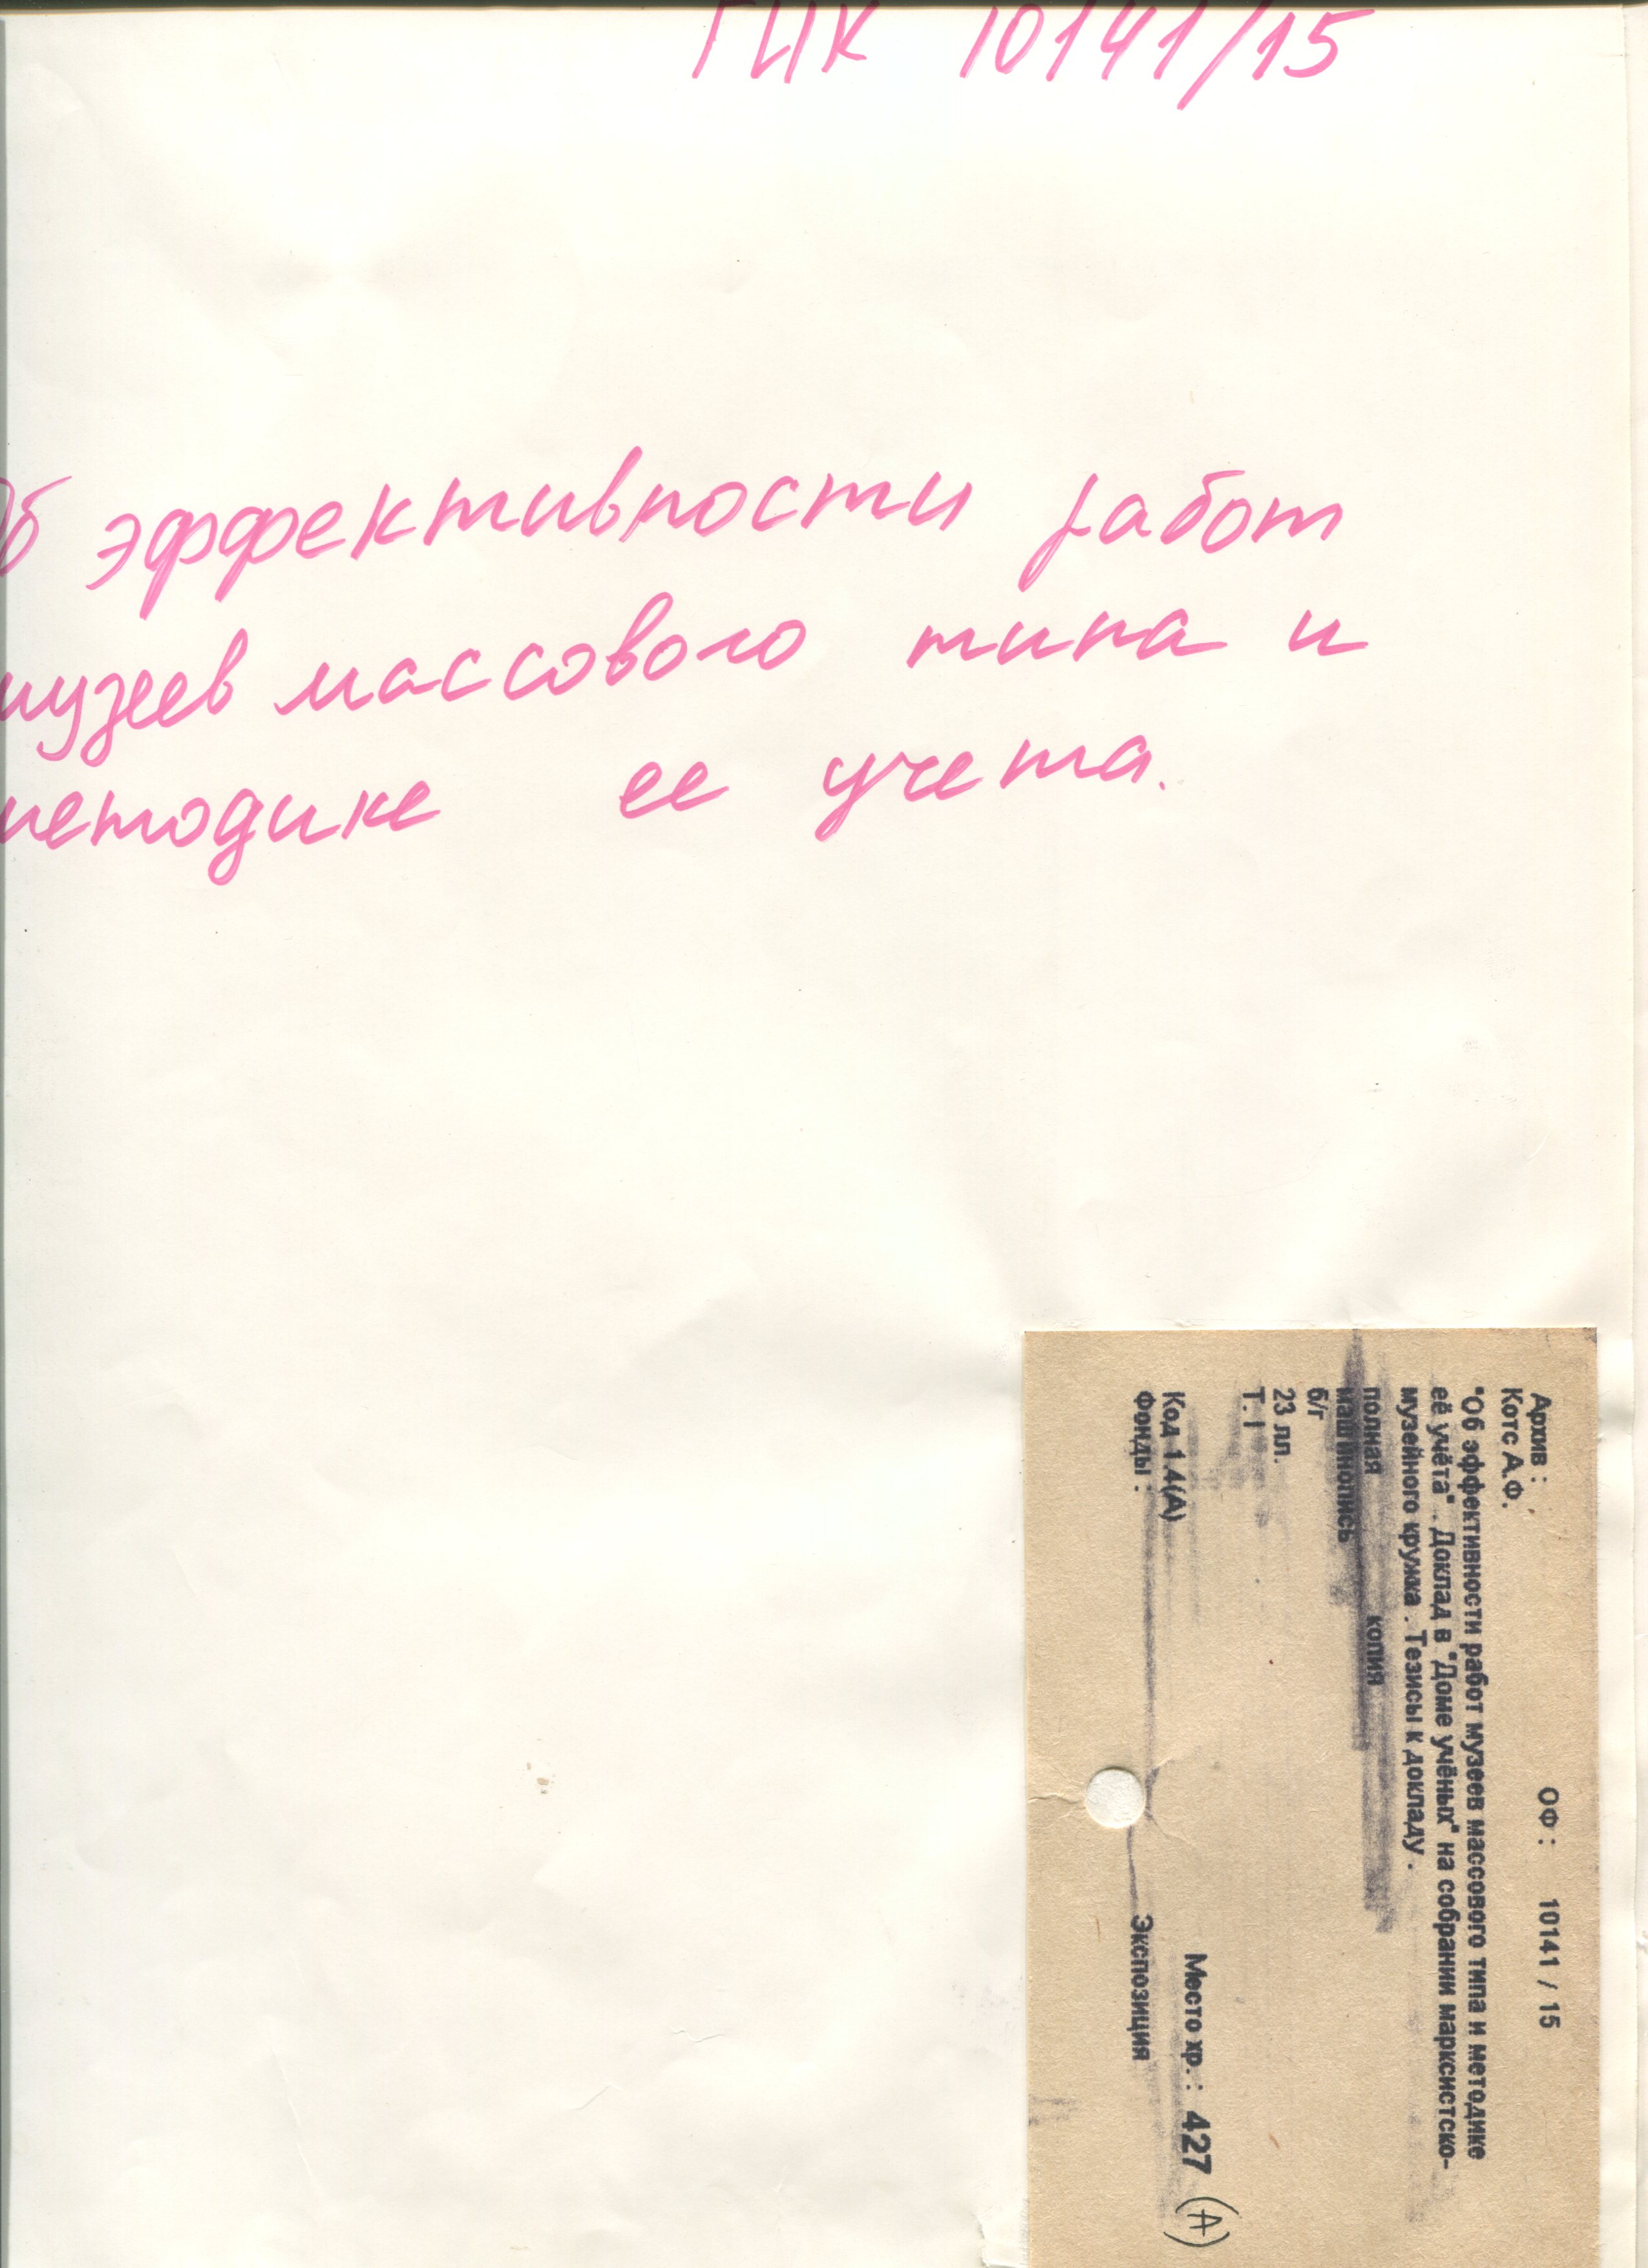 ГИК 10141/15
Об эффективности работ
музеев массового типа и
методике ее учета.
Архив : ОФ : 10141 / 15
Котс А.Ф.
"Об эффективности работ музеев массового типа и методике
её учёта" . Доклад в "Доме учёных" на собрании марксистско-
музейного кружка . Тезисы к докладу .
полная копия
машинопись
б/г
23 лл.
Т. I
Код 1.4(А) Место хр. : 427 (А)
Фонды : Экспозиция